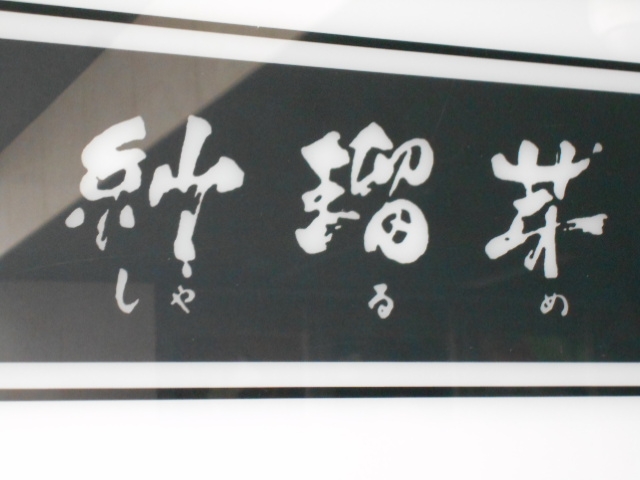 紗瑠芽
しゃるめ